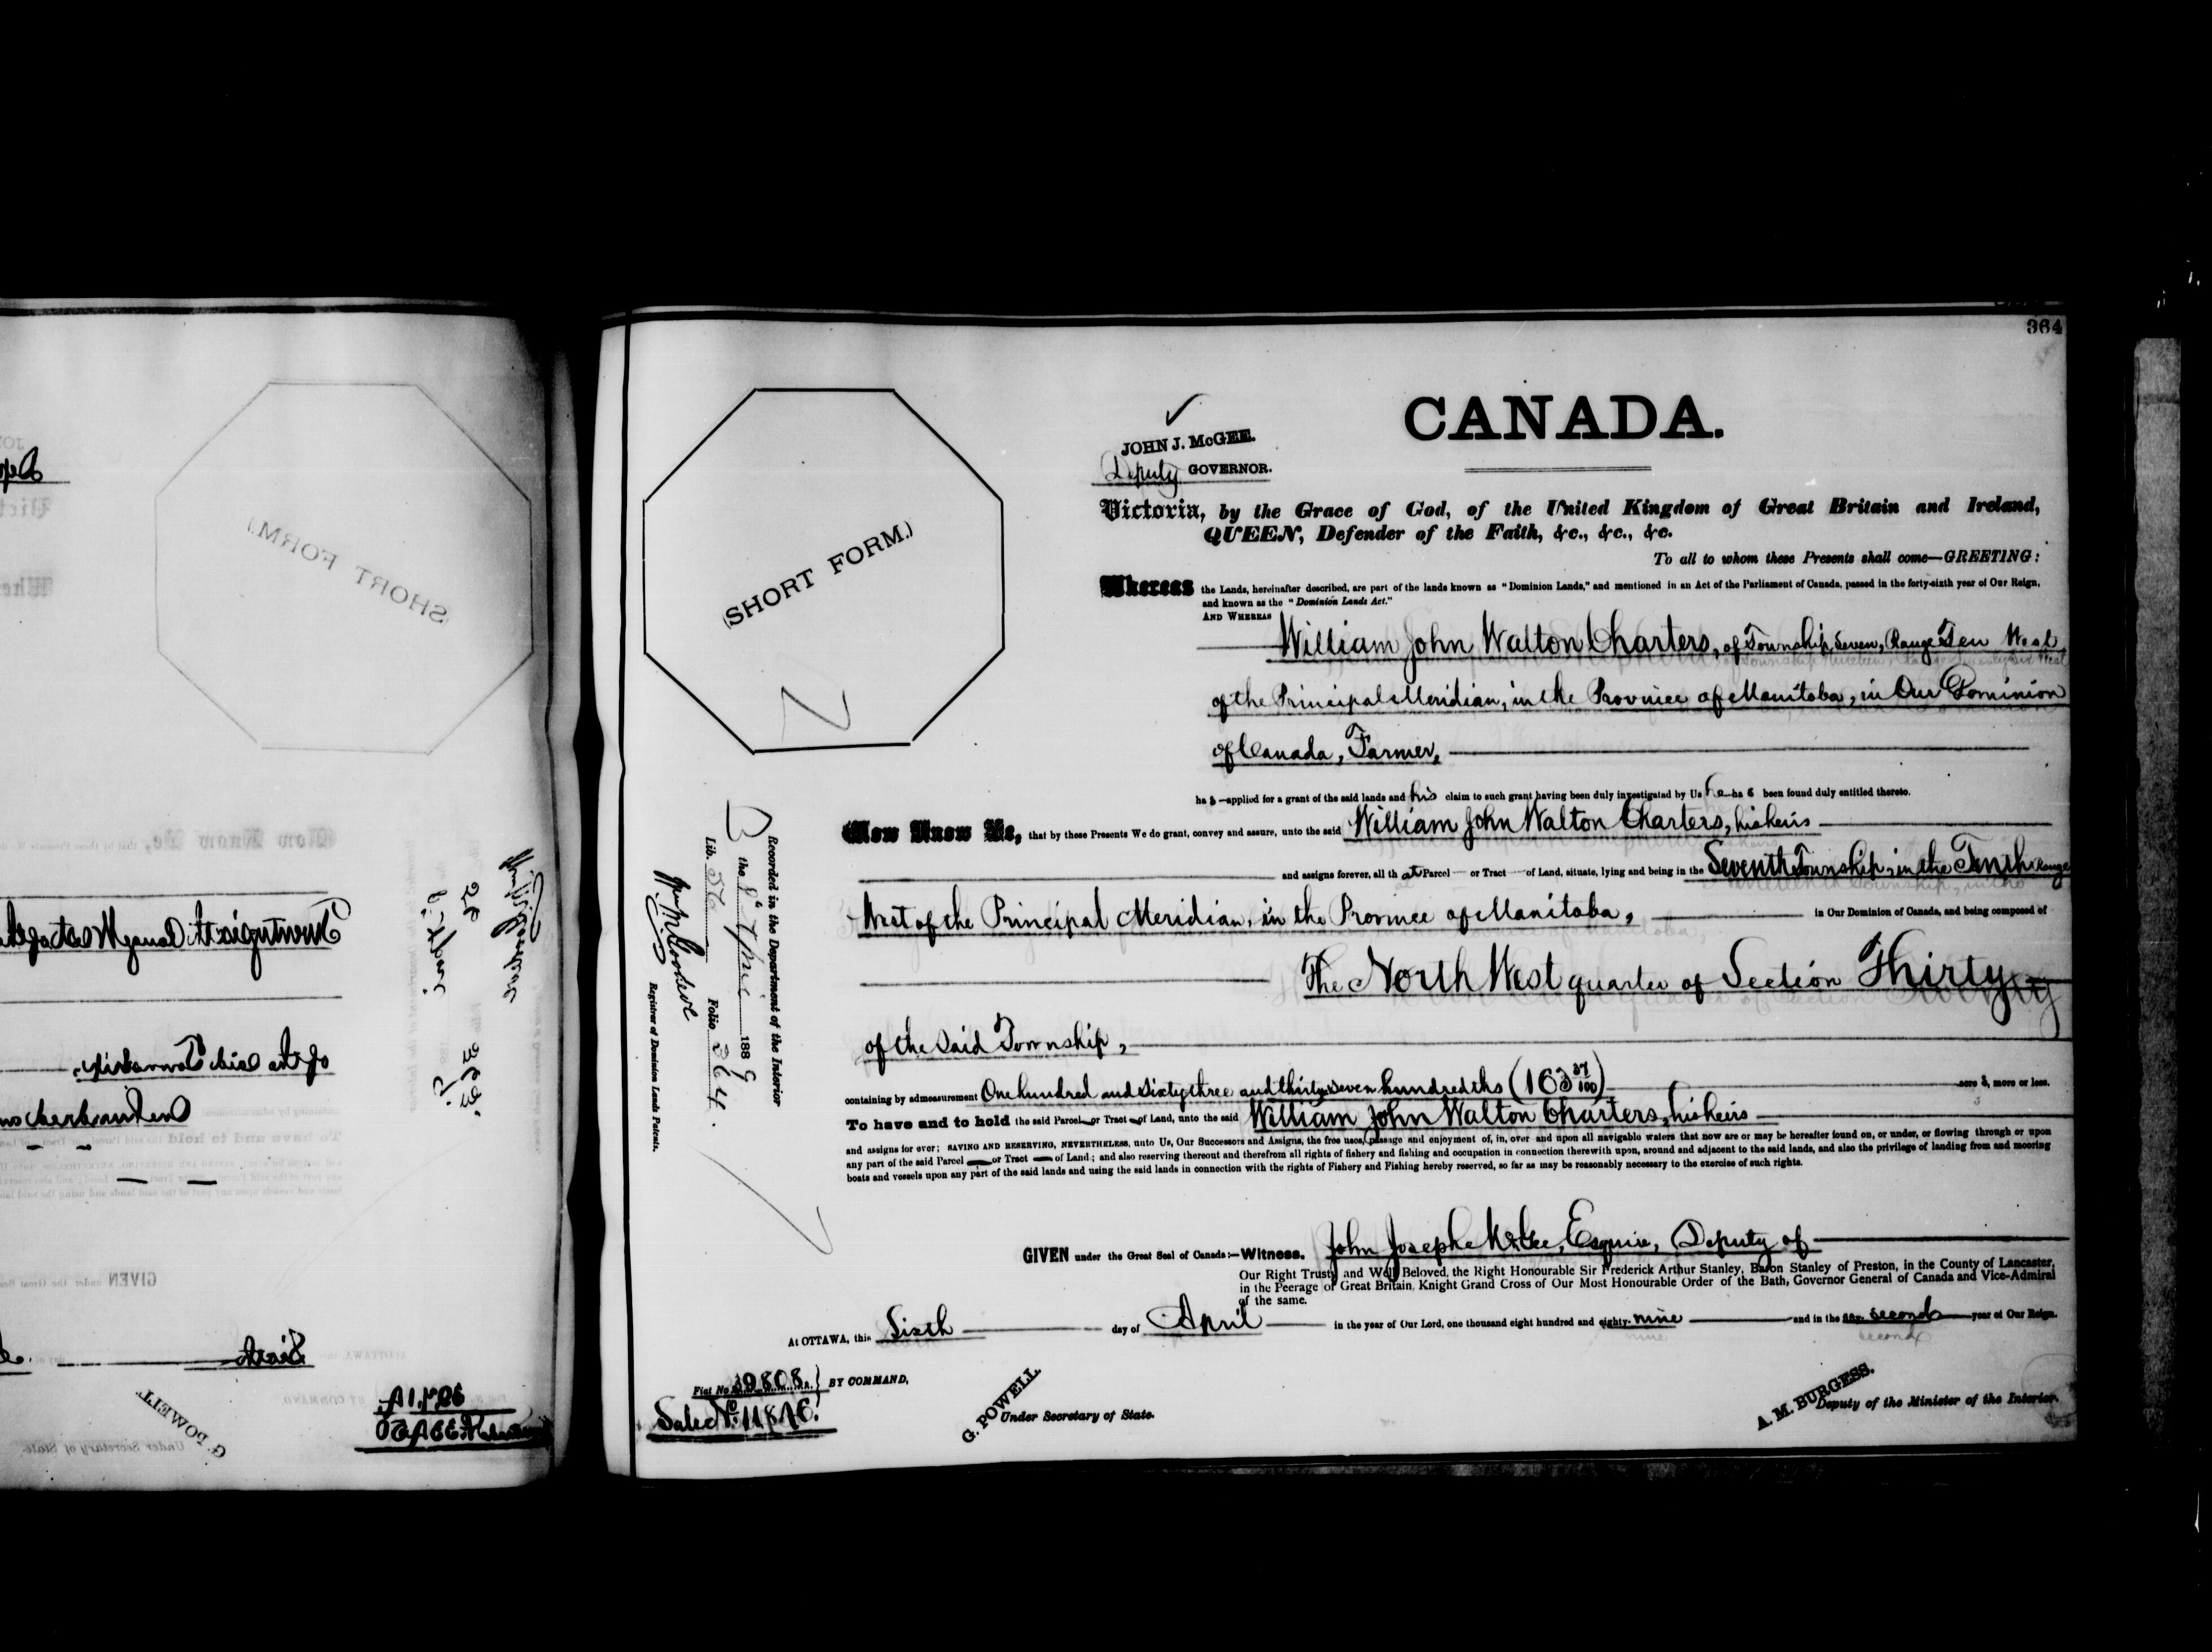 364
CANADA.
JOHN J. McGEE.
Deputy GOVERNOR.
Victoria, by the Grace of God, of the United Kingdom of Great Britain and Ireland,
QUEEN, Defender of the Faith, &c., &c., &c.
To all to whom these Presents shall come—GREETING:
Whereas the Lands, hereinafter described, are part of the lands known as "Dominion Lands," and mentioned in an Act of the Parliament of Canada, passed in the forty-sixth year of Our Reign,
and known as the "Dominion Lands Act."
AND WHEREAS
William John Walton Charters, of Township Seven, Range Ten West
of the Principal Meridian, in the Province of Manitoba, in Our Dominion
of Canada, Farmer,
ha s applied for a grant of the said lands and his claim to such grant having been duly investigated by Us he ha s been found duly entitled thereto.
Now Know Ye, that by these Presents We do grant, convey and assure, unto the said William John Walton Charters, his heirs
and assigns forever, all th at Parcel or Tract of Land, situate, lying and being in the Seventh Township, in the Tenth Range
West of the Principal Meridian, in the Province of Manitoba, in Our Dominion of Canada, and being composed of
The North West quarter of Section Thirty
of the said Township,
containing by admeasurement One hundred and sixty three and thirty seven hundredths (163 37/100) acre s, more or less.
To have and to hold the said Parcel or Tract of Land, unto the said William John Walton Charters, his heirs
and assigns for ever; SAVING AND RESERVING, NEVERTHELESS, unto Us, Our Successors and Assigns, the free uses, passage and enjoyment of, in, over and upon all navigable waters that now are or may be hereafter found on, or under, or flowing through or upon
any part of the said Parcel or Tract of Land; and also reserving thereout and therefrom all rights of fishery and fishing and occupation in connection therewith upon, around and adjacent to the said lands, and also the privilege of landing from and mooring
boats and vessels upon any part of the said lands and using the said lands in connection with the rights of Fishery and Fishing hereby reserved, so far as may be reasonably necessary to the exercise of such rights.
GIVEN under the Great Seal of Canada:—Witness, John Joseph McGee, Esquire, Deputy of
Our Right Trusty and Well Beloved, the Right Honourable Sir Frederick Arthur Stanley, Baron Stanley of Preston, in the County of Lancaster,
in the Peerage of Great Britain, Knight Grand Cross of Our Most Honourable Order of the Bath, Governor General of Canada and Vice-Admiral
of the same.
At OTTAWA, this Sixth day of April in the year of Our Lord, one thousand eight hundred and eighty-nine and in the second year of Our Reign.
Fiat No. 39808. BY COMMAND,
Sale No. 11876.
G. POWELL
Under Secretary of State.
A. M. BURGESS.
Deputy of the Minister of the Interior.
(SHORT FORM.)
Recorded in the Department of the Interior
the 8th April 1889
Lib. 56 Folio 364.
Registrar of Dominion Lands Patents.
(SHORT FORM.)
G. POWELL